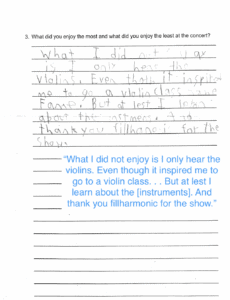 3. What did you enjoy the most and what did you enjoy the least at the concert?
What I did not enjoy
is I only hear the
Violins. Even thoh it inspired
me to go a violin class, and
Fame. But at lest I learn
about the instrmens. And
thank you fillharmoic for the
Show.
"What I did not enjoy is I only hear the
violins. Even though it inspired me to
go to a violin class. . . But at lest I
learn about the [instruments]. And
thank you fillharmonic for the show."